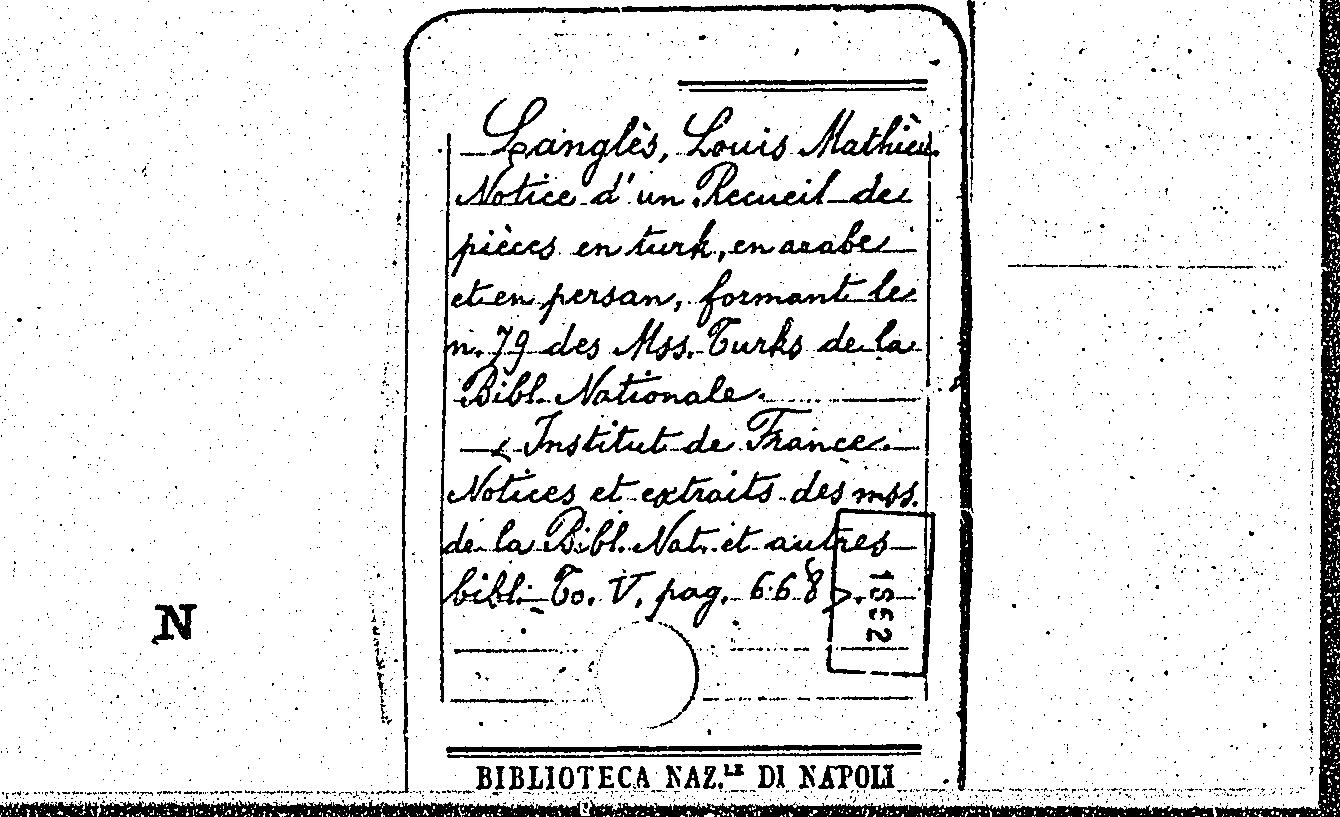 Langlès, Louis Mathieu.
Notice d'un Recueil de
pièces en turk, en arabe
et en persan, formant le
n. 79 des Mss. Turks de la
Bibl. Nationale.
< Institut de France.
Notices et extraits des mss.
de la Bibl. Nat. et autres
bibl. To. V, pag. 668 >.
N
BIBLIOTECA NAZ.LE DI NAPOLI